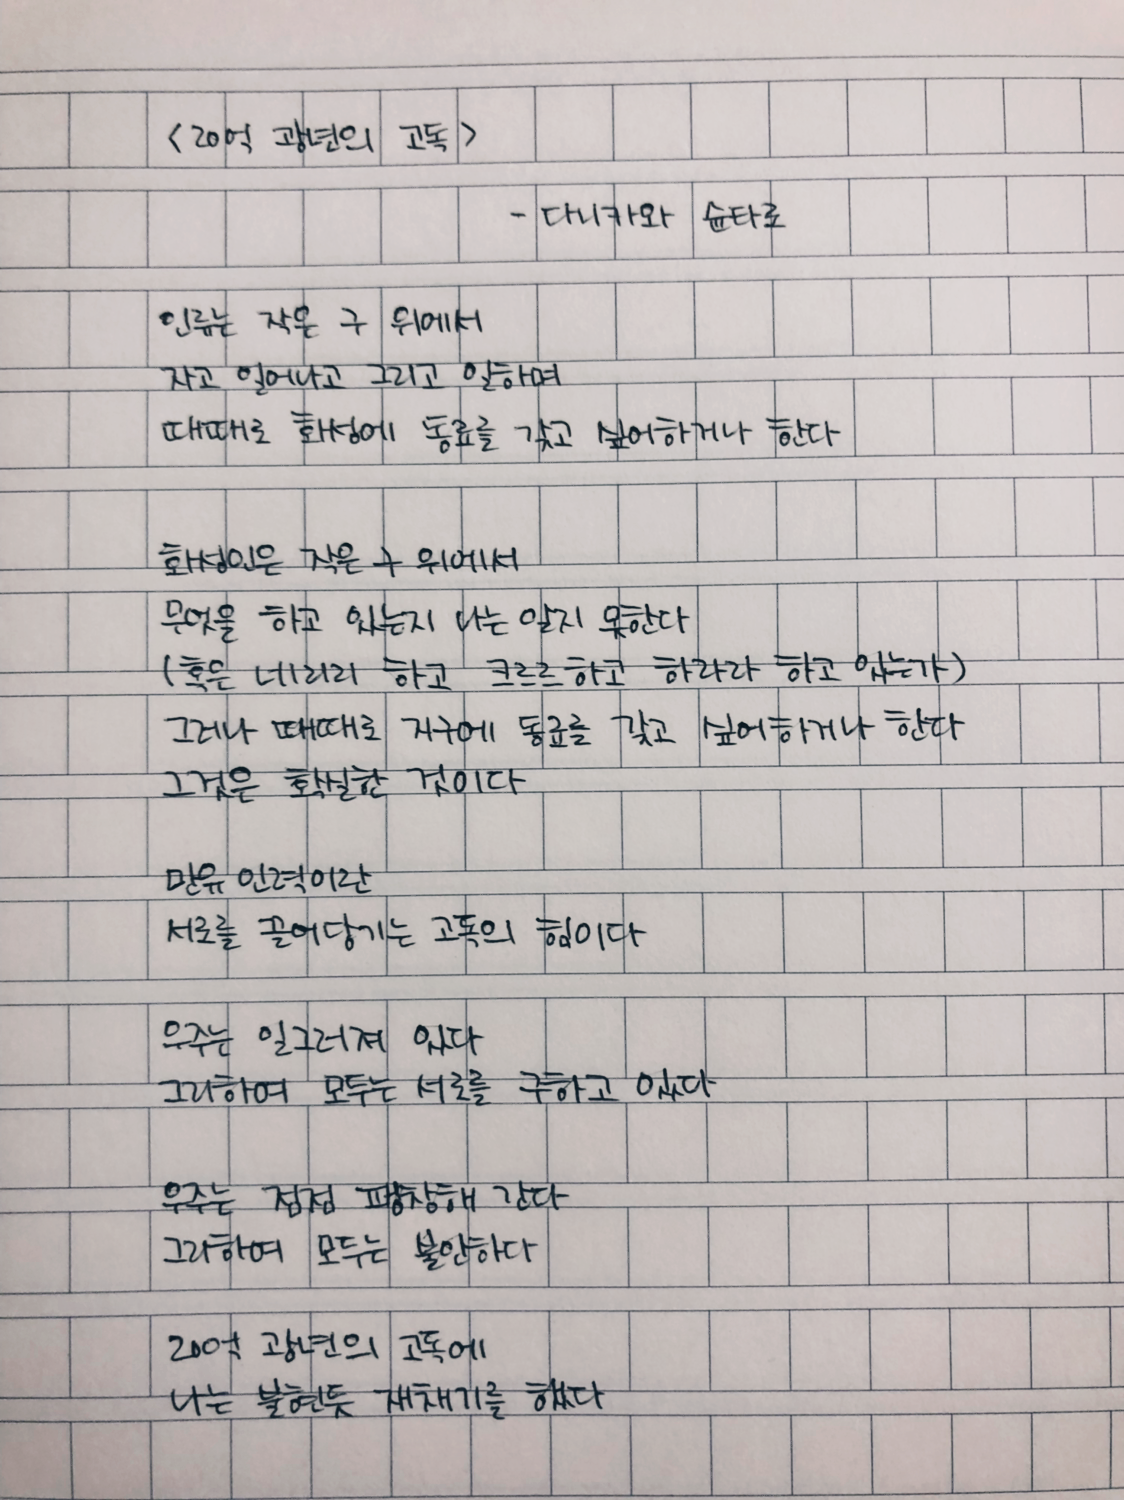 <20억 광년의 고독>
- 다니카와 슌타로
인류는 작은 구 위에서
자고 일어나고 그리고 일하며
때때로 화성에 동료를 갖고 싶어하거나 한다
화성인은 작은 구 위에서
무엇을 하고 있는지 나는 알지 못한다
(혹은 네리리 하고 크르르하고 하라라 하고 있는가)
그러나 때때로 지구에 동료를 갖고 싶어하거나 한다
그것은 확실한 것이다
만유 인력이란
서로를 끌어당기는 고독의 힘이다
우주는 일그러져 있다
그리하여 모두는 서로를 구하고 있다
우주는 점점 팽창해 간다
그리하여 모두는 불안하다
20억 광년의 고독에
나는 불현듯 재채기를 했다